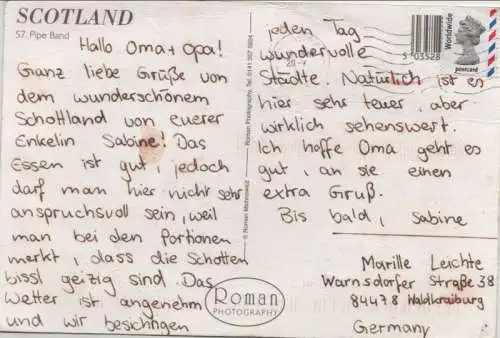 SCOTLAND
57. Pipe Band
Hallo Oma + Opa!
Ganz liebe Grüße von
dem wunderschönem
Schottland von euerer
Enkelin Sabine! Das
Essen ist gut, jedoch
darf man hier nicht sehr
anspruchsvoll sein, weil
man bei den Portionen
merkt, dass die Schotten
bissl geizig sind. Das
Wetter ist angenehm
und wir besichtigen
jeden Tag
wundervolle
Städte. Natürlich ist es
hier sehr teuer, aber
wirklich sehenswert.
Ich hoffe Oma geht es
gut, an sie einen
extra Gruß.
Bis bald, Sabine
Roman
PHOTOGRAPHY
5 03528
Worldwide
postcard
Marille Leichte
Warnsdorfer Straße 38
84478 Waldkraiburg
Germany